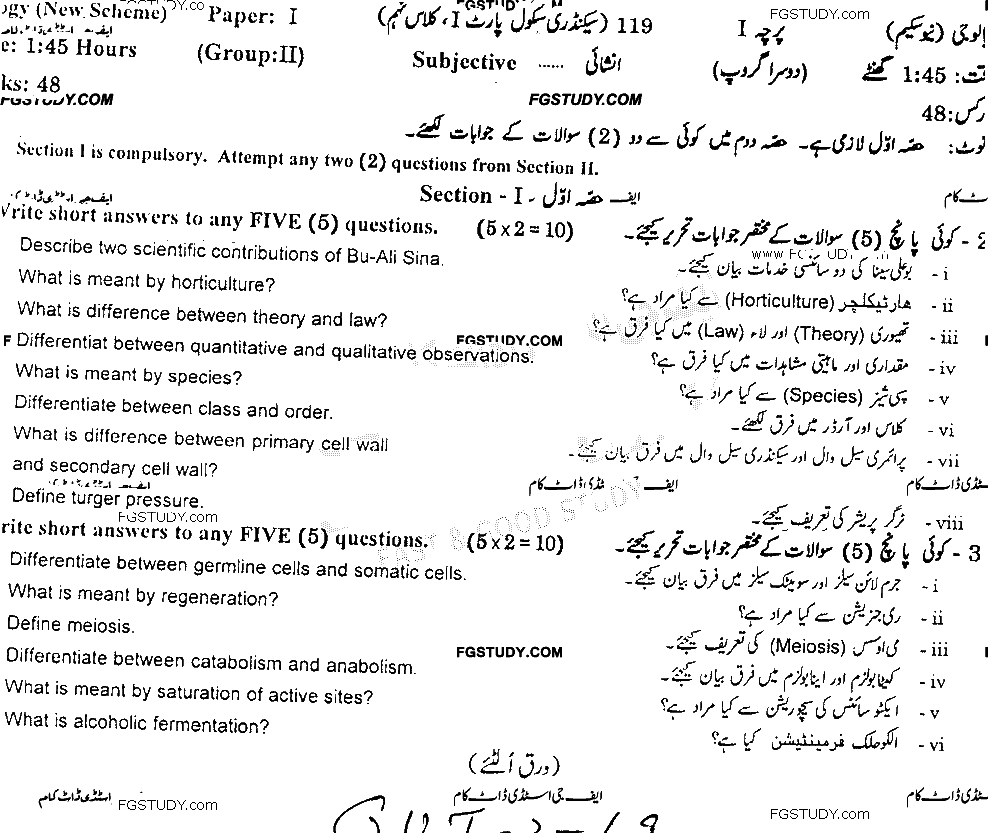 ogy (New Scheme) Paper: I 119 (سیکنڈری سکول پارٹ I، کلاس نہم) پرچہ I الوجی (نیو سکیم)
FGSTUDY.co FGSTUDY FGSTUDY.com
e: 1:45 Hours (Group:II) Subjective ...... انشائی (دوسرا گروپ) قت: 1:45 گھنٹے
ks: 48 رکس:48
FGSTUDY.COM FGSTUDY.COM
نوٹ: حصہ اوّل لازمی ہے۔ حصہ دوم میں کوئی سے دو (2) سوالات کے جوابات لکھئے۔
Section I is compulsory. Attempt any two (2) questions from Section II.
Section - I - حصہ اوّل ایف ٹ کام
Write short answers to any FIVE (5) questions. (5 x 2 = 10) 2 - کوئی پانچ (5) سوالات کے مختصر جوابات تحریر کیجئے۔
Describe two scientific contributions of Bu-Ali Sina. i - بوعلی سینا کی دو سائنسی خدمات بیان کیجئے۔
What is meant by horticulture? ii - ہارٹیکلچر (Horticulture) سے کیا مراد ہے؟
What is difference between theory and law? iii - تھیوری (Theory) اور لاء (Law) میں کیا فرق ہے؟
FGSTUDY.COM
F Differentiat between quantitative and qualitative observations. iv - مقداری اور ماہیتی مشاہدات میں کیا فرق ہے؟
What is meant by species? v - سپی شیز (Species) سے کیا مراد ہے؟
Differentiate between class and order. vi - کلاس اور آرڈر میں فرق لکھئے۔
What is difference between primary cell wall vii - پرائمری سیل وال اور سیکنڈری سیل وال میں فرق بیان کیجئے۔
and secondary cell wall?
ایف سٹڈی ڈاٹ کام سٹڈی ڈاٹ کام
Define turger pressure. viii - ٹرگر پریشر کی تعریف کیجئے۔
FGSTUDY.com
GOOD STUDY
rite short answers to any FIVE (5) questions. (5 x 2 = 10) 3 - کوئی پانچ (5) سوالات کے مختصر جوابات تحریر کیجئے۔
Differentiate between germline cells and somatic cells. i - جرم لائن سیلز اور سومیٹک سیلز میں فرق بیان کیجئے۔
What is meant by regeneration? ii - ری جنریشن سے کیا مراد ہے؟
Define meiosis. iii - می اوسس (Meiosis) کی تعریف کیجئے۔
FGSTUDY.COM
Differentiate between catabolism and anabolism. iv - کیٹابولزم اور اینابولزم میں فرق بیان کیجئے۔
What is meant by saturation of active sites? v - ایکٹو سائٹس کی سچوریشن سے کیا مراد ہے؟
What is alcoholic fermentation? vi - الکوحلک فرمینٹیشن کیا ہے؟
(ورق اُلٹئے)
اسٹڈی ڈاٹ کام FGSTUDY.com ایف جی اسٹڈی ڈاٹ کام FGSTUDY.com سٹڈی ڈاٹ کام